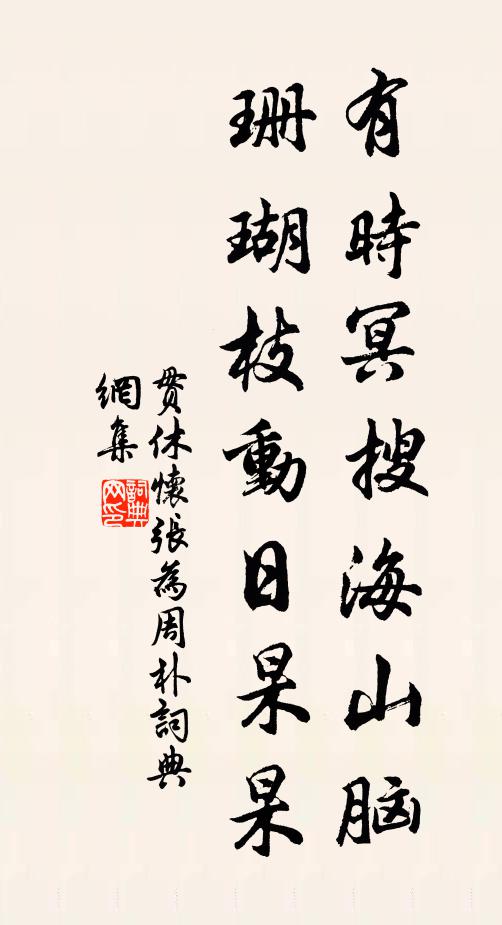 有時冥搜海山脑
珊瑚枝動日杲杲
貫休懷張為周朴詞典
網集
詞典
网印